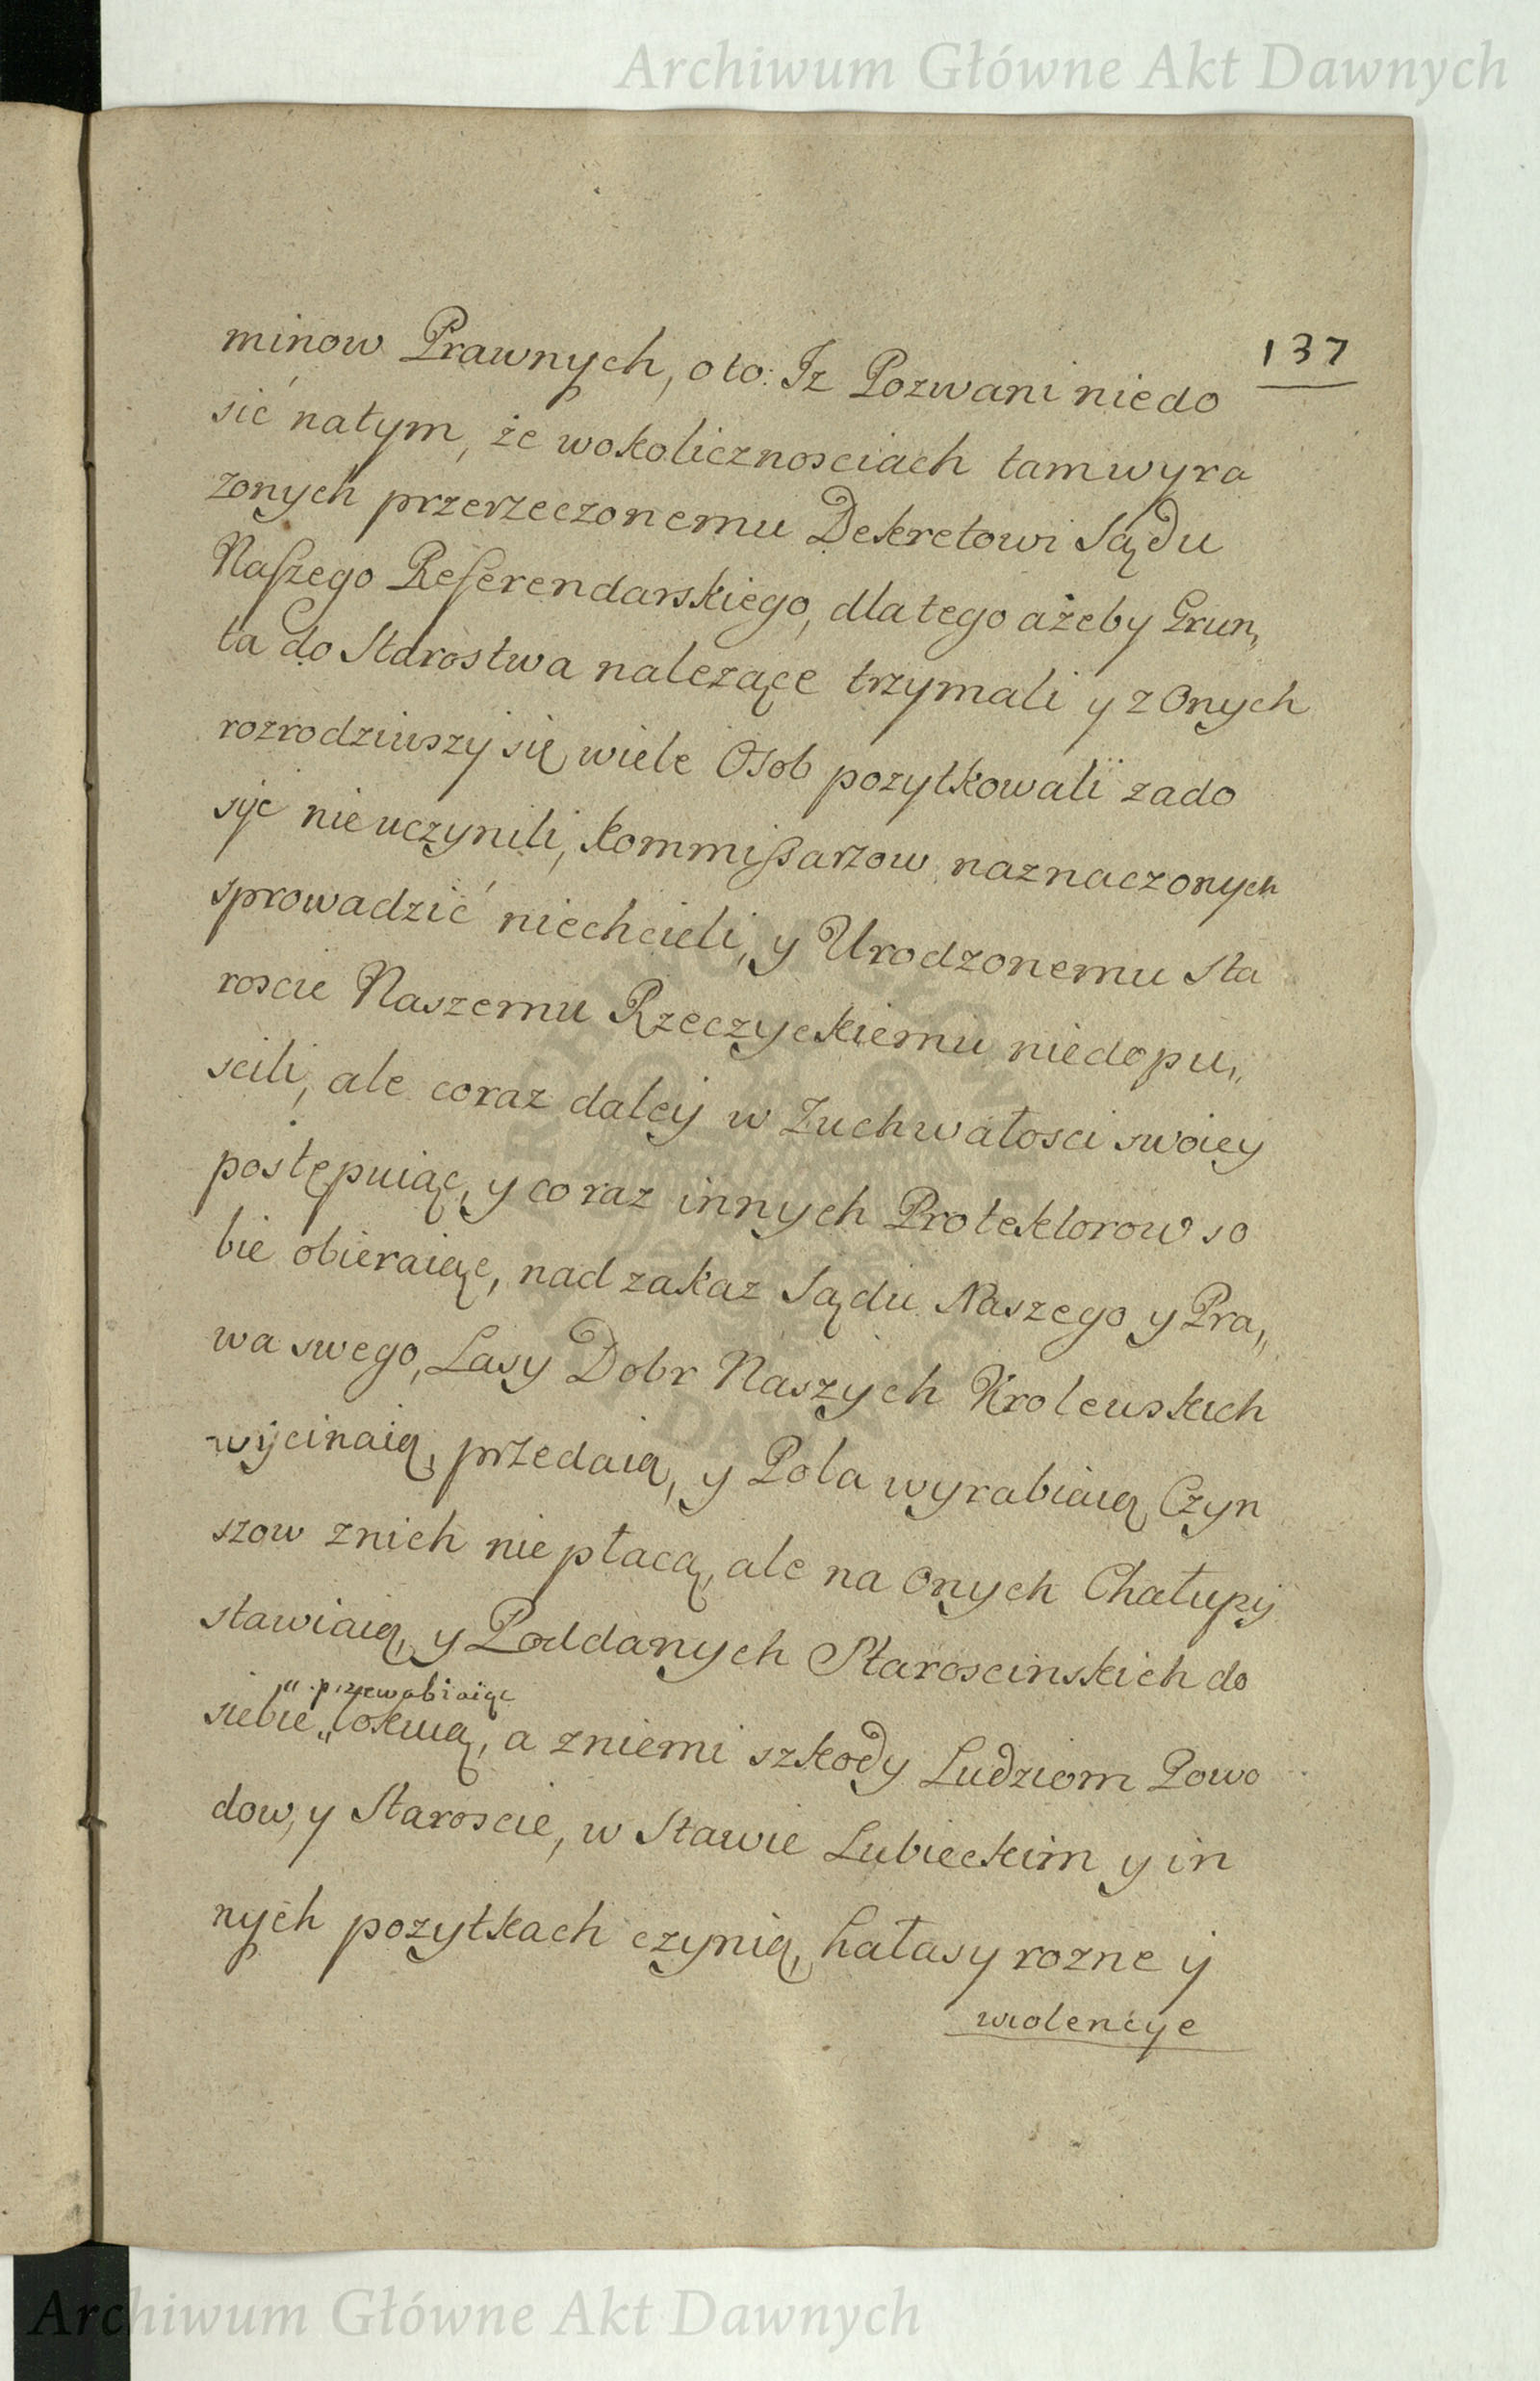 Archiwum Główne Akt Dawnych
137
minow Prawnych, oto: Iz Pozwani niedo
sić natym, że wokolicznosciach tam wyra
zonych przerzeczonemu Dekretowi Sądu
Naszego Referendarskiego, dlatego ażeby Grun„
ta do Starostwa nalezące trzymali y z Onych
rozrodziwszy się wiele Osob pozytkowali zado
syc nieuczynili, Kommissarzow naznaczonych
sprowadzić niechcieli, y Urodzonemu Sta
roscie Naszemu Rzeczyckiemu niedopu„
scili, ale coraz daley w Zuchwałosci swoiey
postępuiąc, y coraz innych Protektorow so
bie obieraiąc, nad zakaz Sądu Naszego y Pra„
wa swego, Lasy Dobr Naszych Krolewskich
wycinaią, przedaią, y Pola wyrabiaią Czyn
szow znich nie płacą, ale na Onych Chałupy
stawiaią, y Poddanych Staroscinskich do
„ przewabiaiąc
siebie „ lokuią, a zniemi szkody Ludziom Powo
dow, y Staroscie, w Stawie Lubieckim y in
nych pozytkach czynią, hałasy rozne y
wiolencye
Archiwum Główne Akt Dawnych